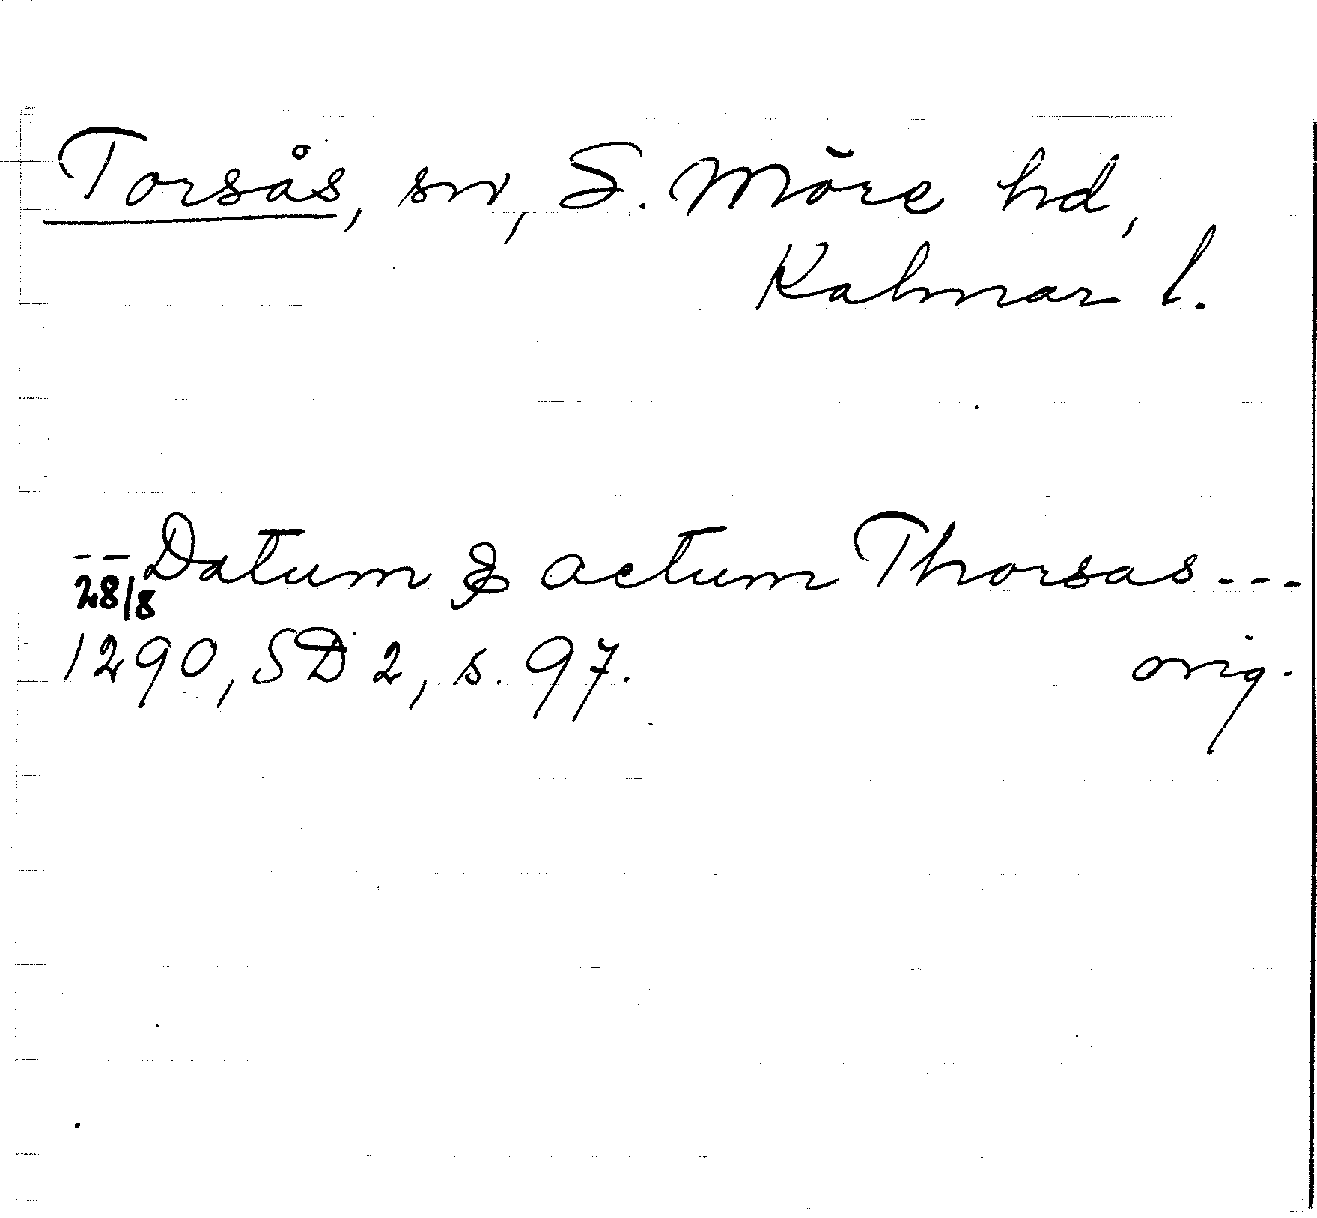 Torsås, sn, S. Möre hd,
Kalmar l.
-- Datum & actum Thorsas ---
28/8
1290, SD 2, s. 97. orig.